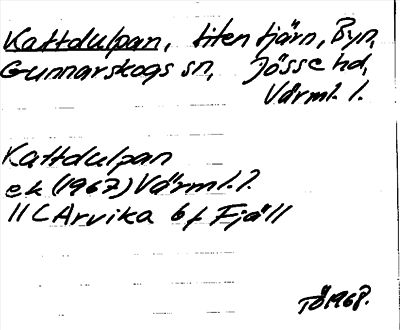 Kattdulpan, liten tjärn, Byn,
Gunnarskogs sn, Jösse hd,
Värml. l.
Kattdulpan
ek (1967) Värml. l.
11 C Arvika 6 f Fjäll
TÖ 1968.